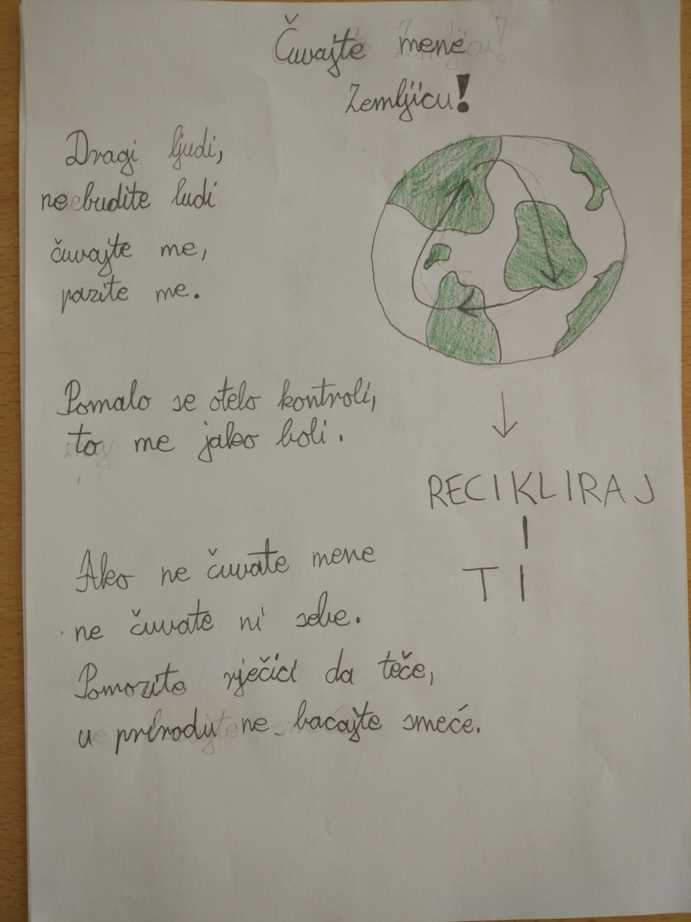 Čuvajte mene
Zemljicu!
Dragi ljudi,
ne budite ludi
čuvajte me,
pazite me.
Pomalo se otelo kontroli,
to me jako boli.
Ako ne čuvate mene
ne čuvate ni sebe.
Pomozite rječici da teče,
u prirodu ne bacajte smeće.
RECIKLIRAJ
I
TI